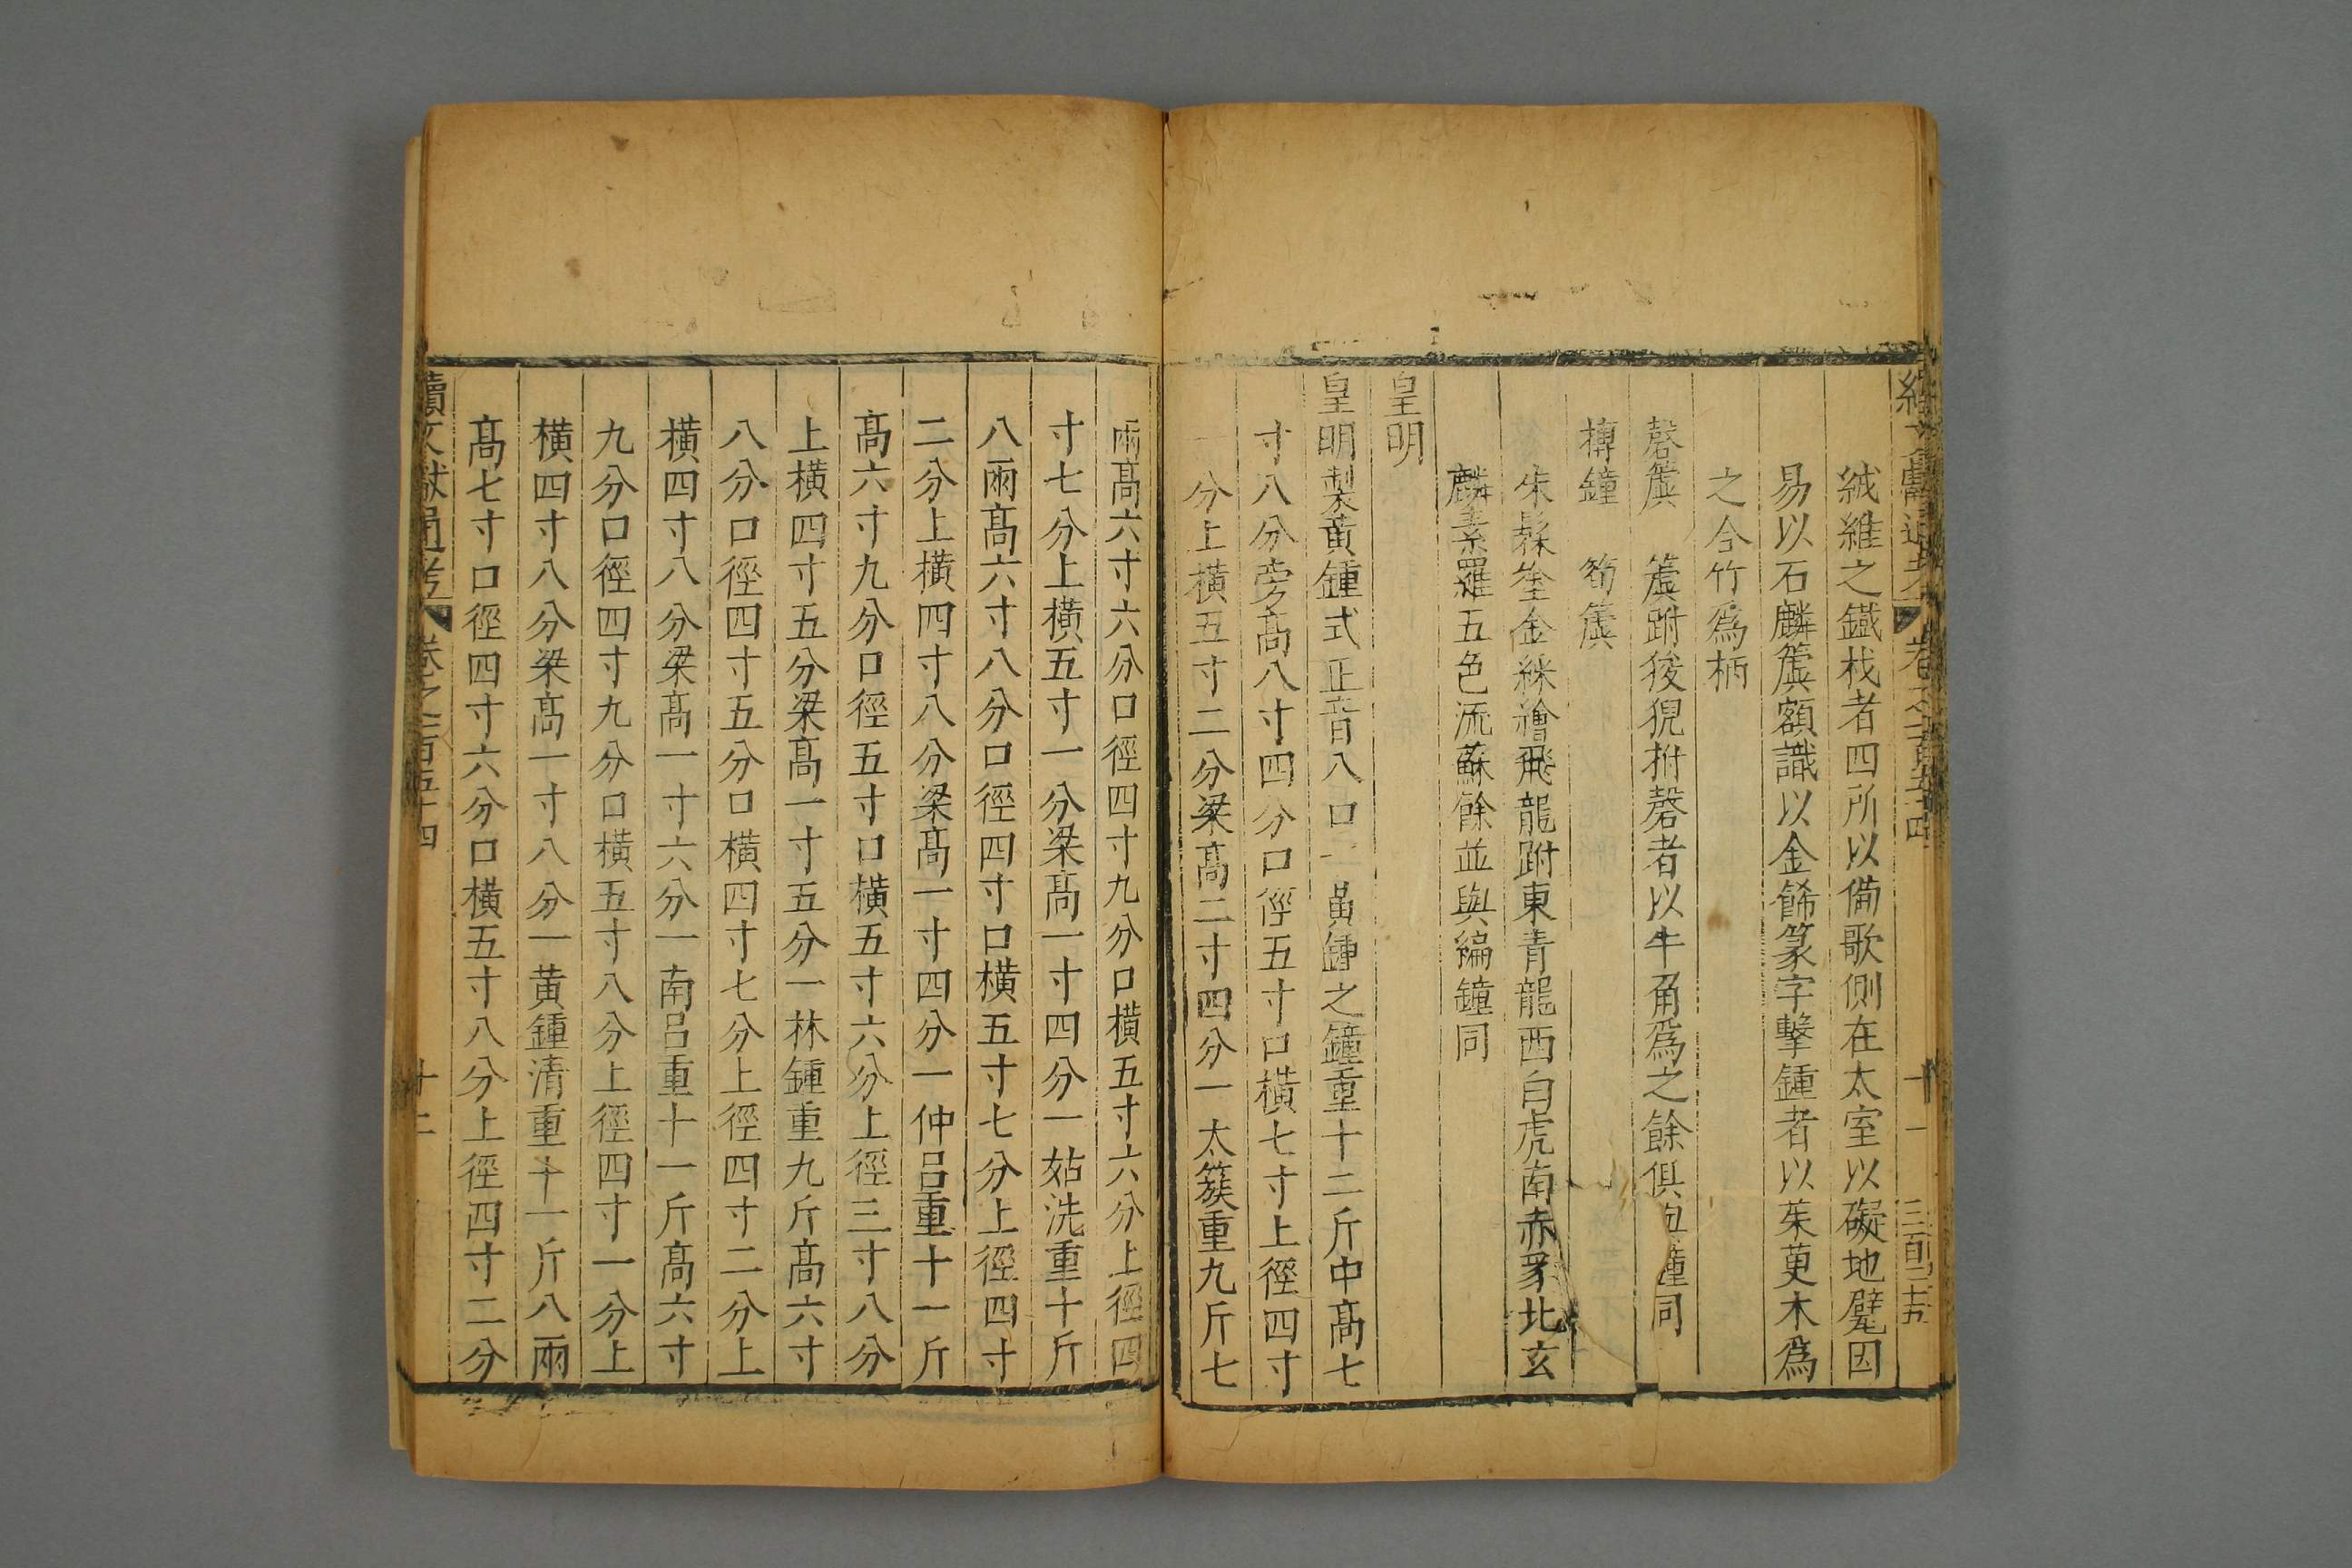 絨維之鐵杙者四所以備歌側在太室以礙地甓因
易以石麟簴額識以金餙篆字擊鍾者以茱萸木爲
之合竹爲柄
磬簴　簴跗狻猊拊磬者以牛角爲之餘俱與鐘同
槫鐘　筍簴
朱髹塗金綵繪飛龍跗東青龍西白虎南赤豸北玄
麟素羅五色流蘇餘並與編鐘同
皇明
皇明製黃鍾式正音八口一黃鍾之鐘重十二斤中髙七
寸八分旁髙八寸四分口徑五寸口橫七寸上徑四寸
一分上橫五寸二分梁髙二寸四分一太簇重九斤七
兩髙六寸六分口徑四寸九分口橫五寸六分上徑四
寸七分上橫五寸一分梁髙一寸四分一姑洗重十斤
八兩髙六寸八分口徑四寸口橫五寸七分上徑四寸
二分上橫四寸八分梁髙一寸四分一仲呂重十一斤
髙六寸九分口徑五寸口橫五寸六分上徑三寸八分
上橫四寸五分梁髙一寸五分一林鍾重九斤髙六寸
八分口徑四寸五分口橫四寸七分上徑四寸二分上
橫四寸八分梁髙一寸六分一南呂重十一斤髙六寸
九分口徑四寸九分口橫五寸八分上徑四寸一分上
橫四寸八分梁髙一寸八分一黃鍾清重十一斤八兩
髙七寸口徑四寸六分口橫五寸八分上徑四寸二分
續文獻通考　卷之二百五十四　十二